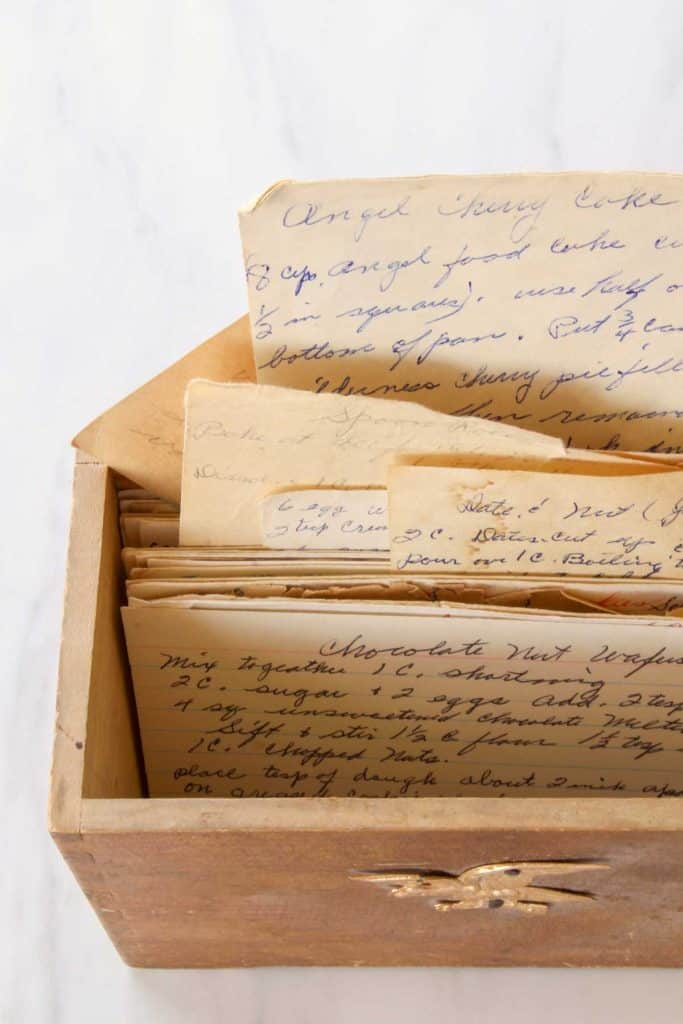 Angel Cherry Cake
8 cup angel food cake cu
1/2 in squares). use half o
bottom of pan. Put 3/4 can
ilderness cherry pie fill
then remain
in
Sponge
Bake at
6 egg w
2 tsp Crea
Date & Nut (
2 C. Dates-cut up &
pour over 1 C. Boiling
Chocolate Nut Wafers
Mix togeather 1 C. shortning
2 C. sugar + 2 eggs add. 2 tesp
4 sq unsweetened chocolate melte
Sift & stir 1 1/2 C flour 1 1/2 tsp
1 C. Chopped Nuts.
place tesp of dough about 2 inch apa
on